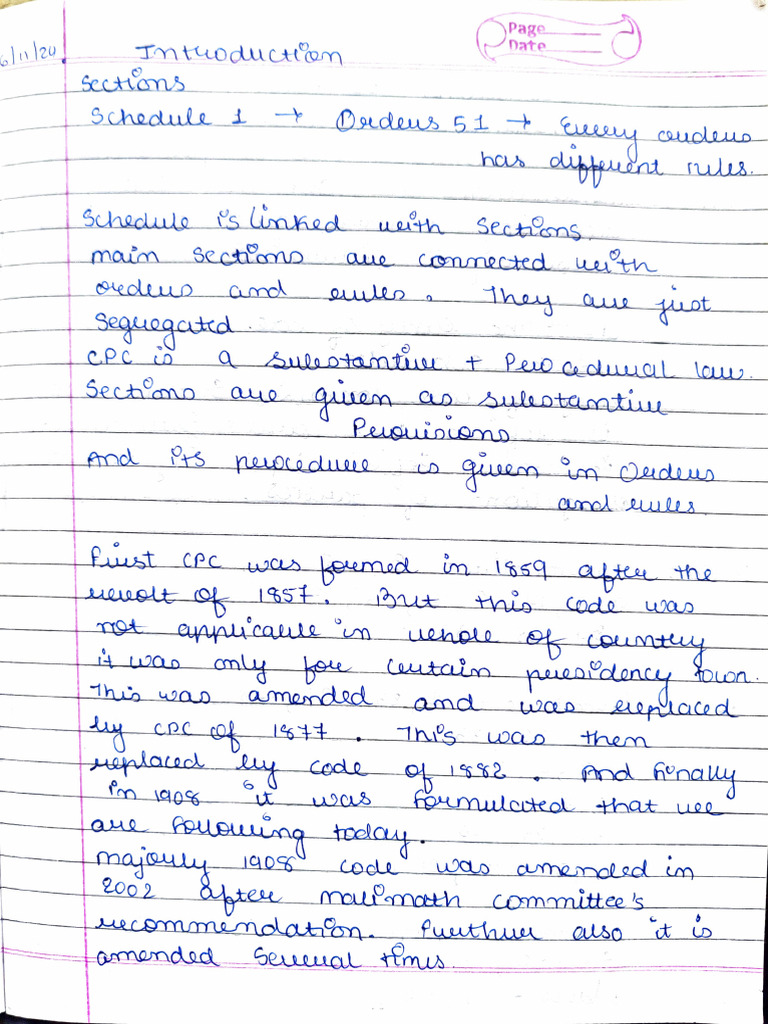 Page
Date
6/11/20
Introduction
Sections
Schedule 1 → Orders 51 → Every orders
has different rules.
Schedule is linked with Sections.
main sections are connected with
orders and rules. They are just
Segregated.
CPC is a substantive + Procedural law.
Sections are given as substantive
Provisions
And its procedure is given in Orders
and rules.
First CPC was formed in 1859 after the
revolt of 1857. But this code was
not applicable in whole of country
it was only for certain presidency town.
This was amended and was replaced
by CPC of 1877. This was then
replaced by code of 1882. And finally
in 1908 it was formulated that we
are following today.
majorly 1908 code was amended in
2002 after malimath committee's
recommendation. Further also it is
amended several times.